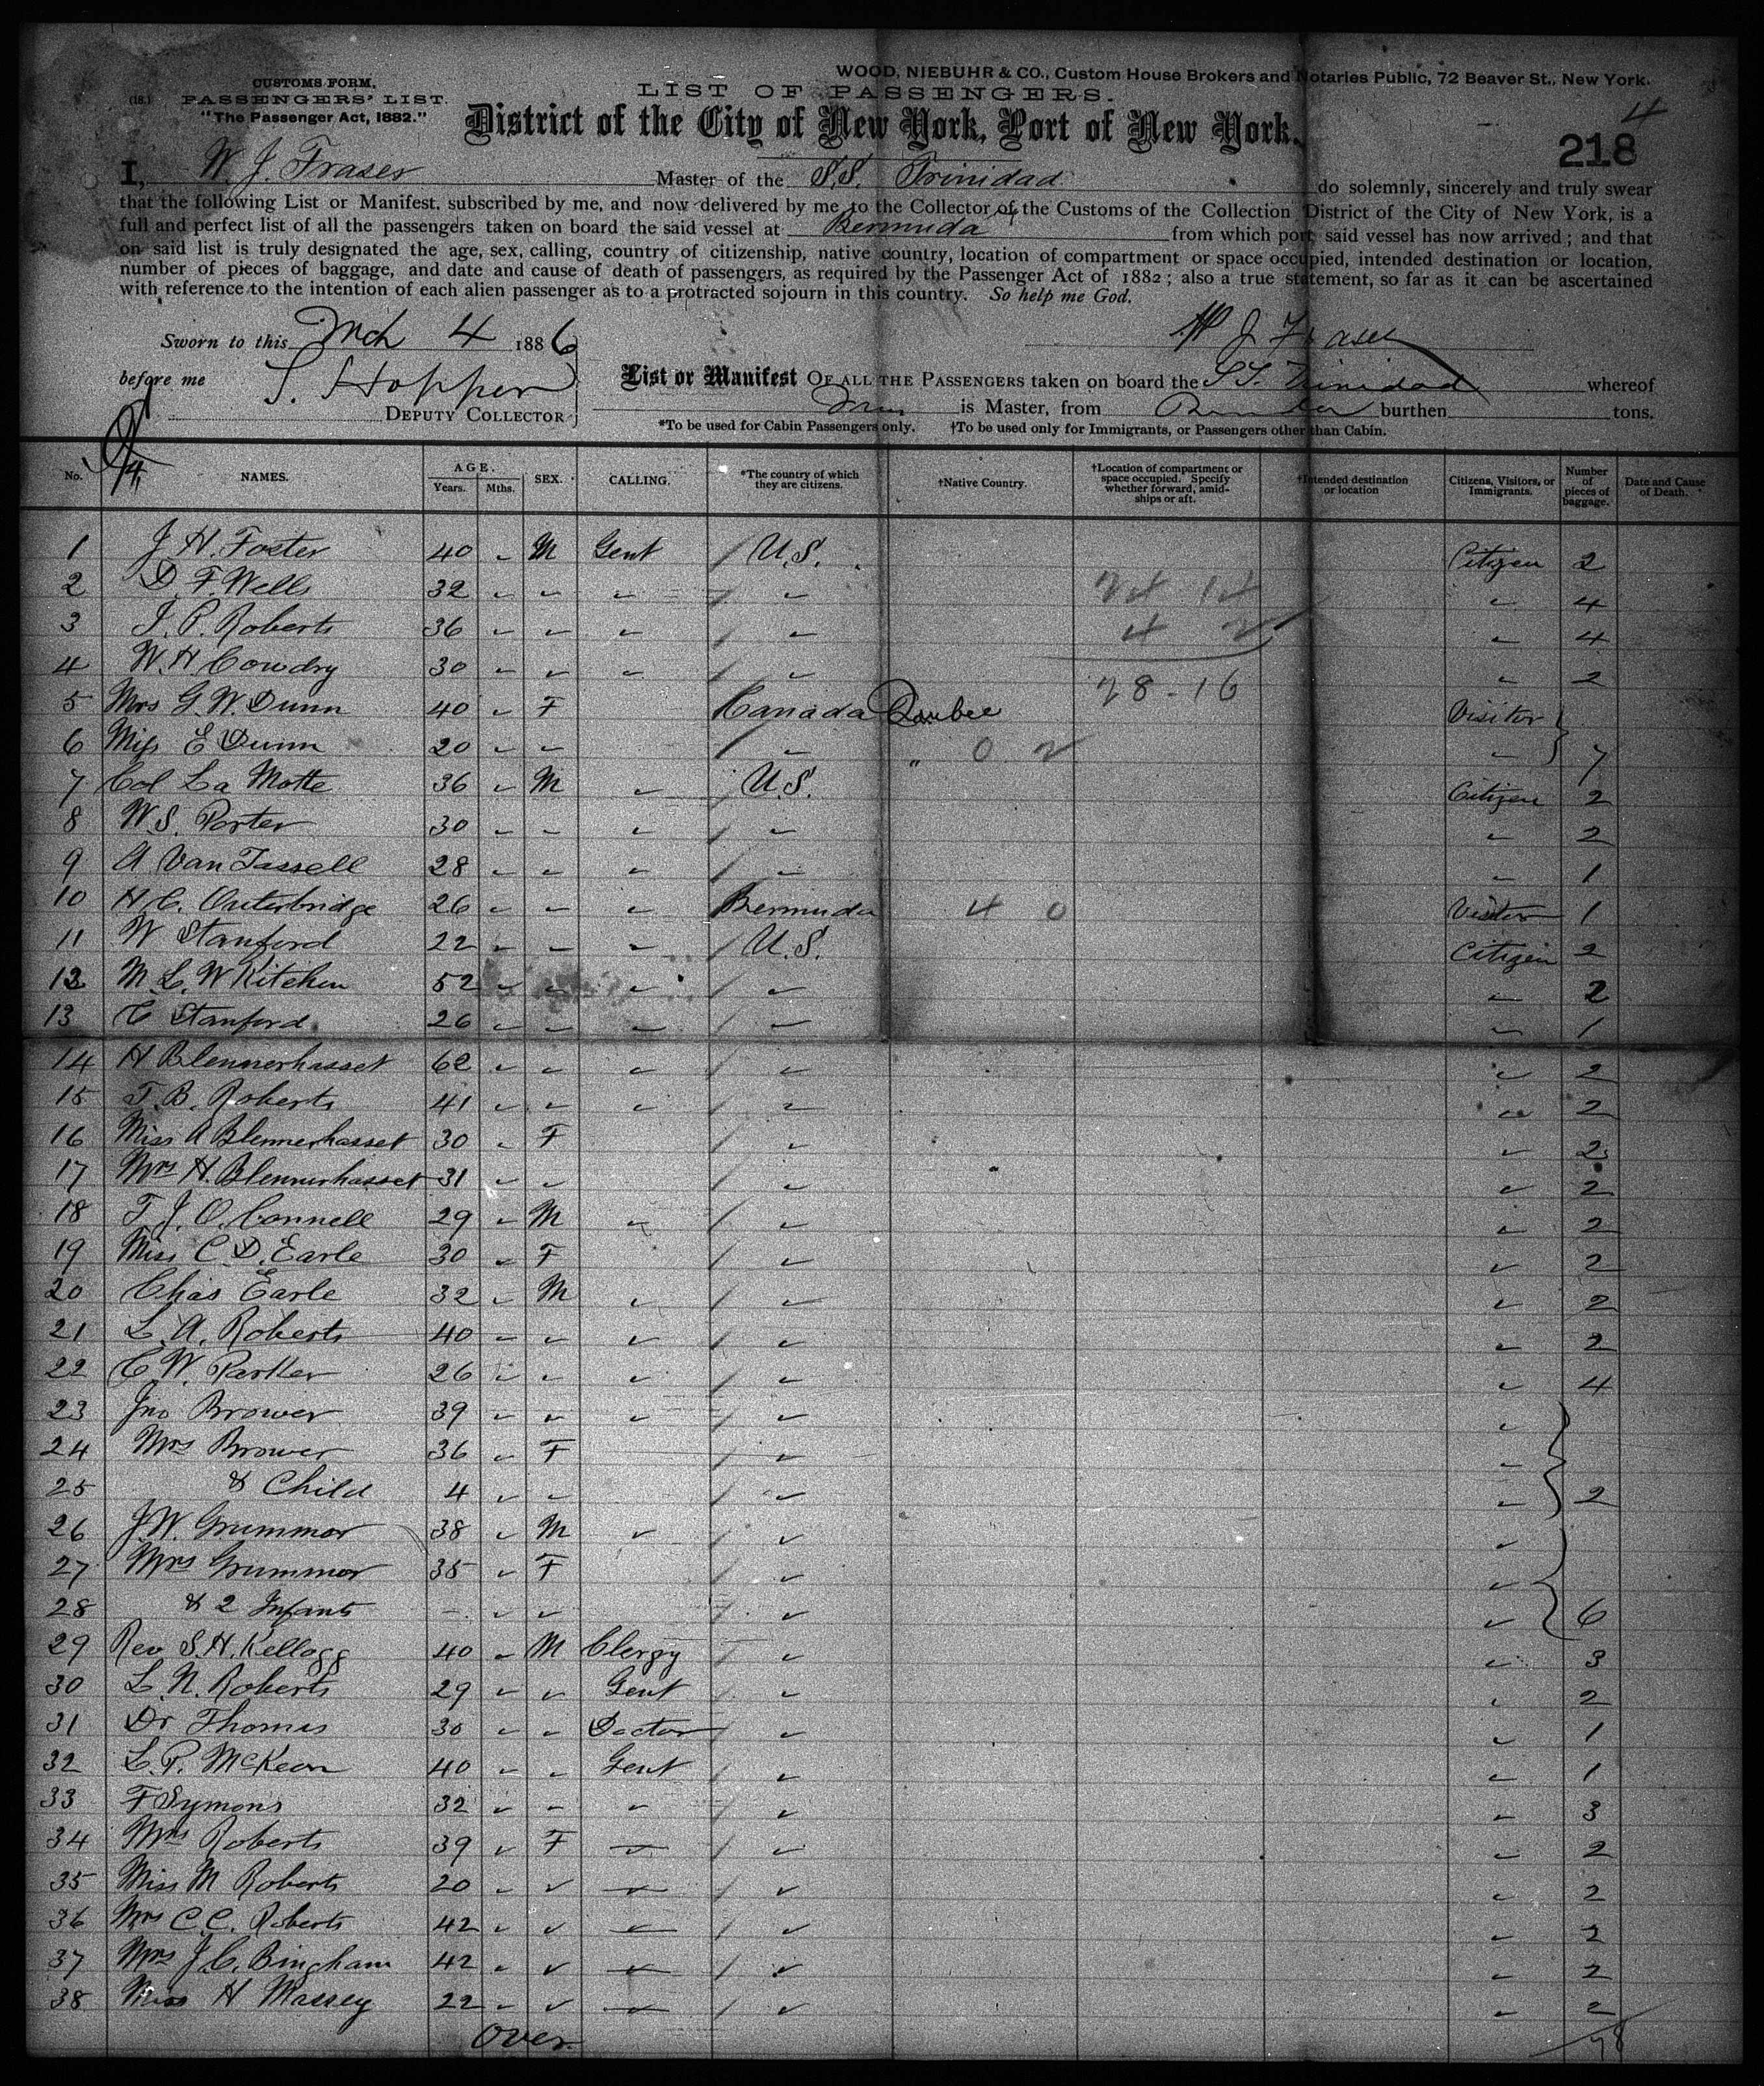 WOOD, NIEBUHR & CO., Custom House Brokers and Notaries Public, 72 Beaver St., New York.
CUSTOMS FORM,
PASSENGERS' LIST.
"The Passenger Act, 1882."
LIST OF PASSENGERS.
4
District of the City of New York, Port of New York.
218
I, W. J. Fraser Master of the S.S. Trinidad do solemnly, sincerely and truly swear
that the following List or Manifest, subscribed by me, and now delivered by me to the Collector of the Customs of the Collection District of the City of New York, is a
full and perfect list of all the passengers taken on board the said vessel at Bermuda from which port said vessel has now arrived; and that
on said list is truly designated the age, sex, calling, country of citizenship, native country, location of compartment or space occupied, intended destination or location,
number of pieces of baggage, and date and cause of death of passengers, as required by the Passenger Act of 1882; also a true statement, so far as it can be ascertained
with reference to the intention of each alien passenger as to a protracted sojourn in this country. So help me God.
Sworn to this Mch 4 1886
W J Fraser
before me S. Hopper
DEPUTY COLLECTOR
List or Manifest OF ALL THE PASSENGERS taken on board the S.S. Trinidad whereof
is Master, from Bermuda burthen tons.
*To be used for Cabin Passengers only. †To be used only for Immigrants, or Passengers other than Cabin.
No. NAMES. AGE. Years. Mths. SEX. CALLING. *The country of which they are citizens. †Native Country. †Location of compartment or space occupied. Specify whether forward, amidships or aft. †Intended destination or location Citizens, Visitors, or Immigrants. Number of pieces of baggage. Date and Cause of Death.
1 J H. Foster 40 " M Gent / U.S. Citizen 2
2 D. F. Wells 32 " " " / " 24 14 " 4
3 I. P. Roberts 36 " " " / " 4 2 " 4
4 W. H Cowdry 30 " " " / " 28-16 " 2
5 Mrs G. W. Dunn 40 " F Canada Quebec Visitor
6 Miss E Dunn 20 " " / " " 0 2 " 7
7 Col La Motte 36 " M " U.S. Citizen 2
8 W. S. Porter 30 " " " / " " 2
9 A Van Tassell 28 " " " / " " 1
10 H. C. Outerbridge 26 " " " Bermuda 4 0 Visitor 1
11 W Stanford 22 " " " / U.S. Citizen 2
12 M. L. W Kitchen 52 " " " / " " 2
13 C Stanford 26 " " " / " " 1
14 H Blennerhasset 62 " " " / " " 2
15 T. B. Roberts 41 " " " / " " 2
16 Miss A Blennerhasset 30 " F / " " 2
17 Mrs H. Blennerhasset 31 " " / " " 2
18 T. J. O. Connell 29 " M " / " " 2
19 Miss C. D. Earle 30 " F / " " 2
20 Chas Earle 32 " M " / " " 2
21 L. A. Roberts 40 " " " / " " 2
22 C W. Parker 26 " " " / " " 4
23 Jno Brower 39 " " " / " "
24 Mrs Brower 36 " F / " "
25 & Child 4 " " / " " 2
26 J. W. Grummor 38 " M " / " "
27 Mrs Grummor 35 " F / " "
28 & 2 Infants - " " " " 6
29 Rev S. H. Kellogg 40 " M Clergy / " " 3
30 L. N. Roberts 29 " " Gent / " " 2
31 Dr Thomas 30 " " Doctor / " " 1
32 L. P. McKeon 40 " " Gent / " " 1
33 F Symons 32 " " " / " " 3
34 Mrs Roberts 39 " F " / " " 2
35 Miss M Roberts 20 " " " / " " 2
36 Mrs C. C. Roberts 42 " " " / " " 2
37 Mrs J. C. Bingham 42 " " " / " " 2
38 Miss H Massey 22 " " " / " " 2
Over